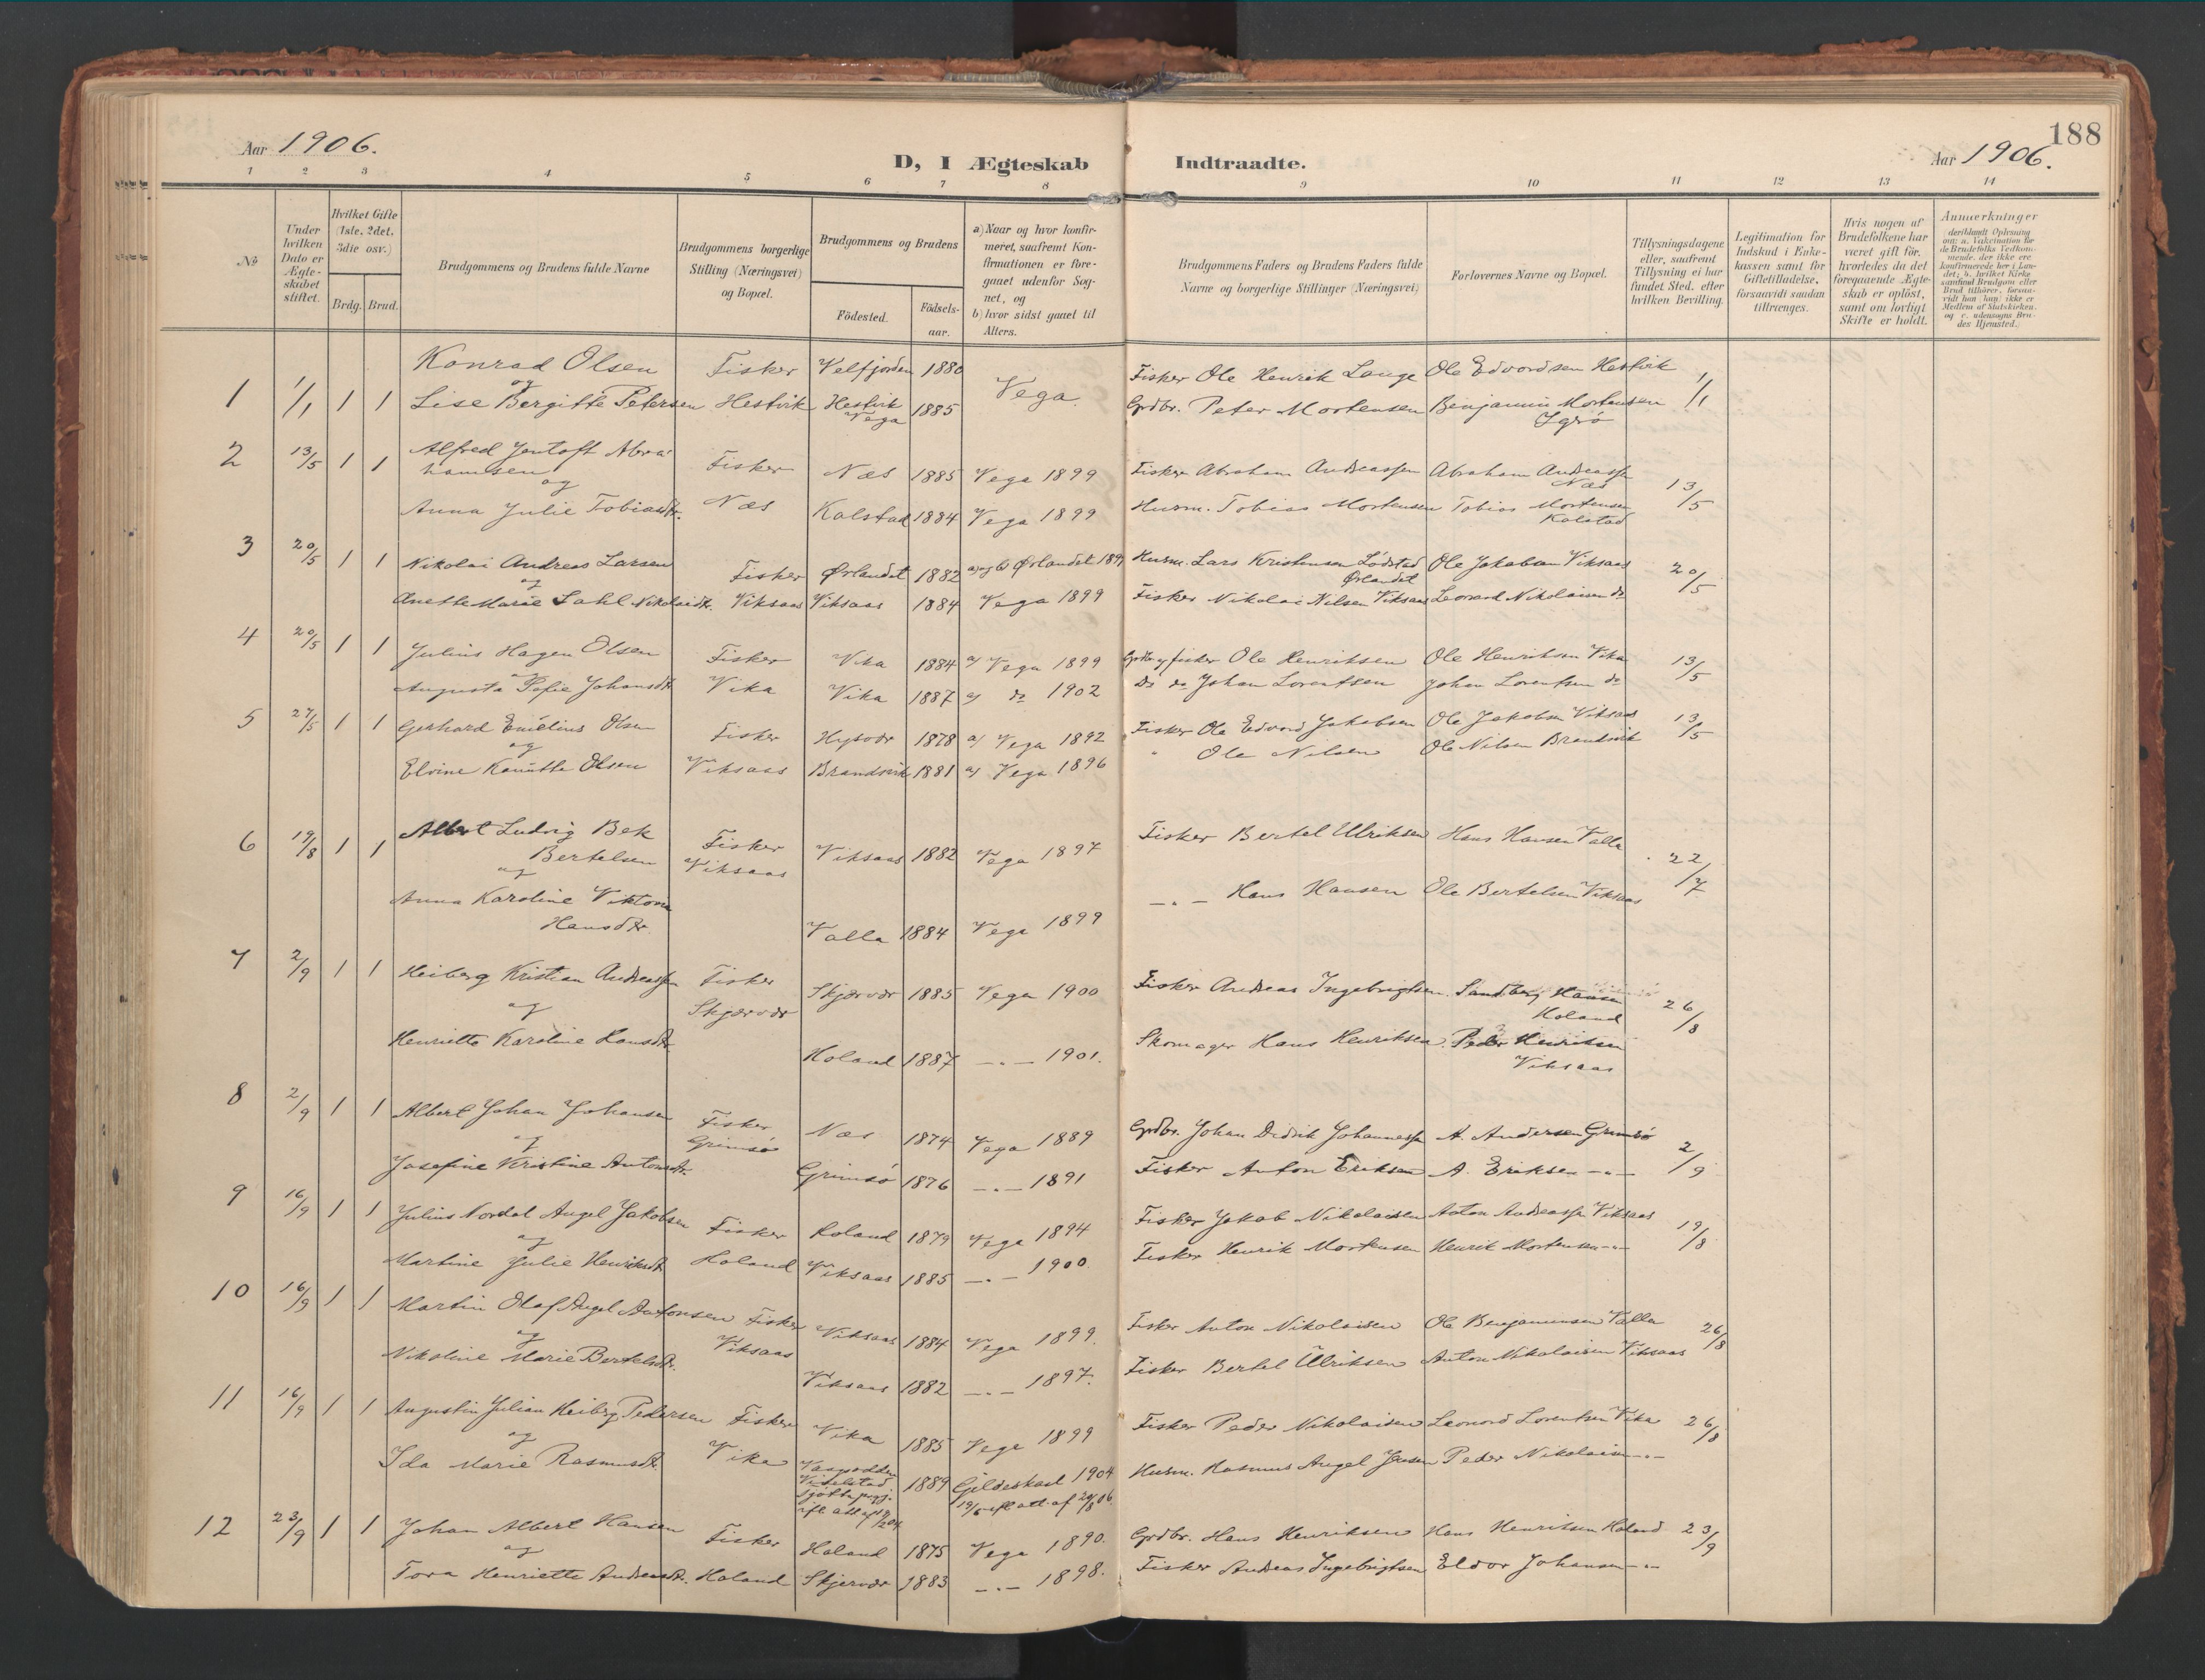 188
Aar 1906.
D, I Ægteskab Indtraadte.
Aar 1906.
1 2 3 4 5 6 7 8 9 10 11 12 13 14
No
Under hvilken Dato er Ægteskabet stiftet.
Hvilket Gifte (1ste, 2det, 3die osv.)
Brdg. Brud.
Brudgommens og Brudens fulde Navne
Brudgommens borgerlige Stilling (Næringsvei) og Bopæl.
Brudgommens og Brudens
Födested. Födsels-aar.
a) Naar og hvor konfirmeret, saafremt Konfirmationen er foregaaet udenfor Sognet, og
b) hvor sidst gaaet til Alters.
Brudgommens Faders og Brudens Faders fulde Navne og borgerlige Stillinger (Næringsvei)
Forlovernes Navne og Bopæl.
Tillysningsdagene eller, saafremt Tillysning ei har fundet Sted, efter hvilken Bevilling.
Legitimation for Indskud i Enkekassen samt for Giftetilladelse, forsaavidt saadan tiltrænges.
Hvis nogen af Brudefolkene har været gift før, hvorledes da det foregaaende Ægteskab er opløst, samt om lovligt Skifte er holdt.
Anmerkninger
deriblandt Oplysning om: a. Vakcination for de Brudefolks Vedkommende, der ikke ere konfirmerede her i Landet; b. hvilket Kirkesamfund Brudgom eller Brud tilhører, forsaavidt han (hun) ikke er Medlem af Statskirken, og c. udensogns Brudes Hjemsted.
Konrad Olsen Fisker Velfjorden 1880 Fisker Ole Henrik Lange Ole Edvardsen Hestvik
1 1/1 1 1 og Vega 1/1
Lise Bergitte Petersen Hestvik Hestvik Vega 1885 Grdbr. Peter Mortensen Benjamin Mortensen
2 13/5 1 1 Alfred Jentoft Abrahamsen Fisker Næs 1885 Vega 1899 Fisker Abraham Andreassen Abraham Andreassen Næs 13/5
og
Anna Julie Tobiasdtr. Næs Kalstad 1884 Vega 1899 Husm. Tobias Mortensen Tobias Mortensen Kalstad
3 20/5 1 1 Nikolai Andreas Larsen Fisker Ørlandet 1882 a) og b) Ørlandet Husm. Lars Kristensen Ørlandet Ole Jakobsen Viksaas 20/5
og
Anette Marie Nikolaidtr. Viksaas Viksaas 1884 Vega 1899 Fisker Nikolai Nilsen Viksaas Leonard Nikolaisen do
4 20/5 1 1 Julius Hagen Olsen Fisker Vika 1884 a) Vega 1899 Grdbr og fisker Ole Henriksen Ole Henriksen Vika 13/5
Augusta Johansdtr Vika Vika 1887 a) do 1902 Do do Johan Lorentsen Johan Lorentsen do
5 27/5 1 1 Gerhard Emelius Olsen Fisker 1878 a) Vega 1892 Fisker Ole Edvard Jakobsen Ole Jakobsen Viksaas 13/5
og
Elvine Olsen Viksaas Brandsvik 1881 a) Vega 1896 " Ole Nilsen Ole Nilsen Brandsvik
6 19/8 1 1 Albert Ludvig Bek Bertelsen Fisker Viksaas Viksaas 1882 Vega 1897 Fisker Bertel Ulriksen Hans Hansen Valla 22/7
og
Anna Karoline Viktoria Hansdtr. Valla 1884 Vega 1899 —"— Hans Hansen Ole Bertelsen Viksaas
7 2/9 1 1 Heiberg Kristian Andreassen Fisker Skjærvær Skjærvær 1885 Vega 1900 Fisker Andreas Ingebrigtsen Sandberg Hansen Holand 26/8
og
Henriette Karoline Hansdtr. Holand 1887 —"— 1901. Skomager Hans Henriksen Peder Henriksen Viksaas
8 2/9 1 1 Albert Johan Johansen Fisker Grimsø Næs 1874 Vega 1889 Grdbr. Johan Didrik Johannessen A. Andersen Grimsø 2/9
og
Josefine Kristine Antonsdtr. Grimsø 1876 —"— 1891 Fisker Anton Eriksen A. Eriksen —"—
9 16/9 1 1 Julius Nordal Angel Jakobsen Fisker Holand 1879 Vega 1894 Fisker Jakob Nikolaisen Anton Andreassen Viksaas 19/8
og
Martine Julie Henriksdtr. Holand Viksaas 1885 —"— 1900. Fisker Henrik Mortensen Henrik Mortensen —"—
10 16/9 1 1 Martin Olaf Angel Antonsen Fisker Viksaas 1884 Vega 1899. Fisker Anton Nikolaisen Ole Benjaminsen Valla 26/8
og Viksaas
Nikoline Marie Bertelsdtr. Viksaas 1882 —"— 1897. Fisker Bertel Ulriksen Anton Nikolaisen Viksaas
11 16/9 1 1 Augustin Julian Heiberg Pedersen Fisker Vika 1885 Vega 1899 Fisker Peder Nikolaisen Leonard Lorentsen Vika 26/8
og
Ida Marie Rasmusdtr. Vika 1889 Gildeskaal 1904 Husm. Rasmus Angel Jensen Peder Nikolaisen —"—
12 23/9 1 1 Johan Albert Hansen Fisker Holand 1875 Vega 1890. Grdbr. Hans Henriksen Hans Henriksen Holand 23/9
og
Tora Henriette Andreasdtr. Holand Skjervær 1883 —"— 1898. Fisker Andreas Ingebrigtsen Eldor Johansen —"—